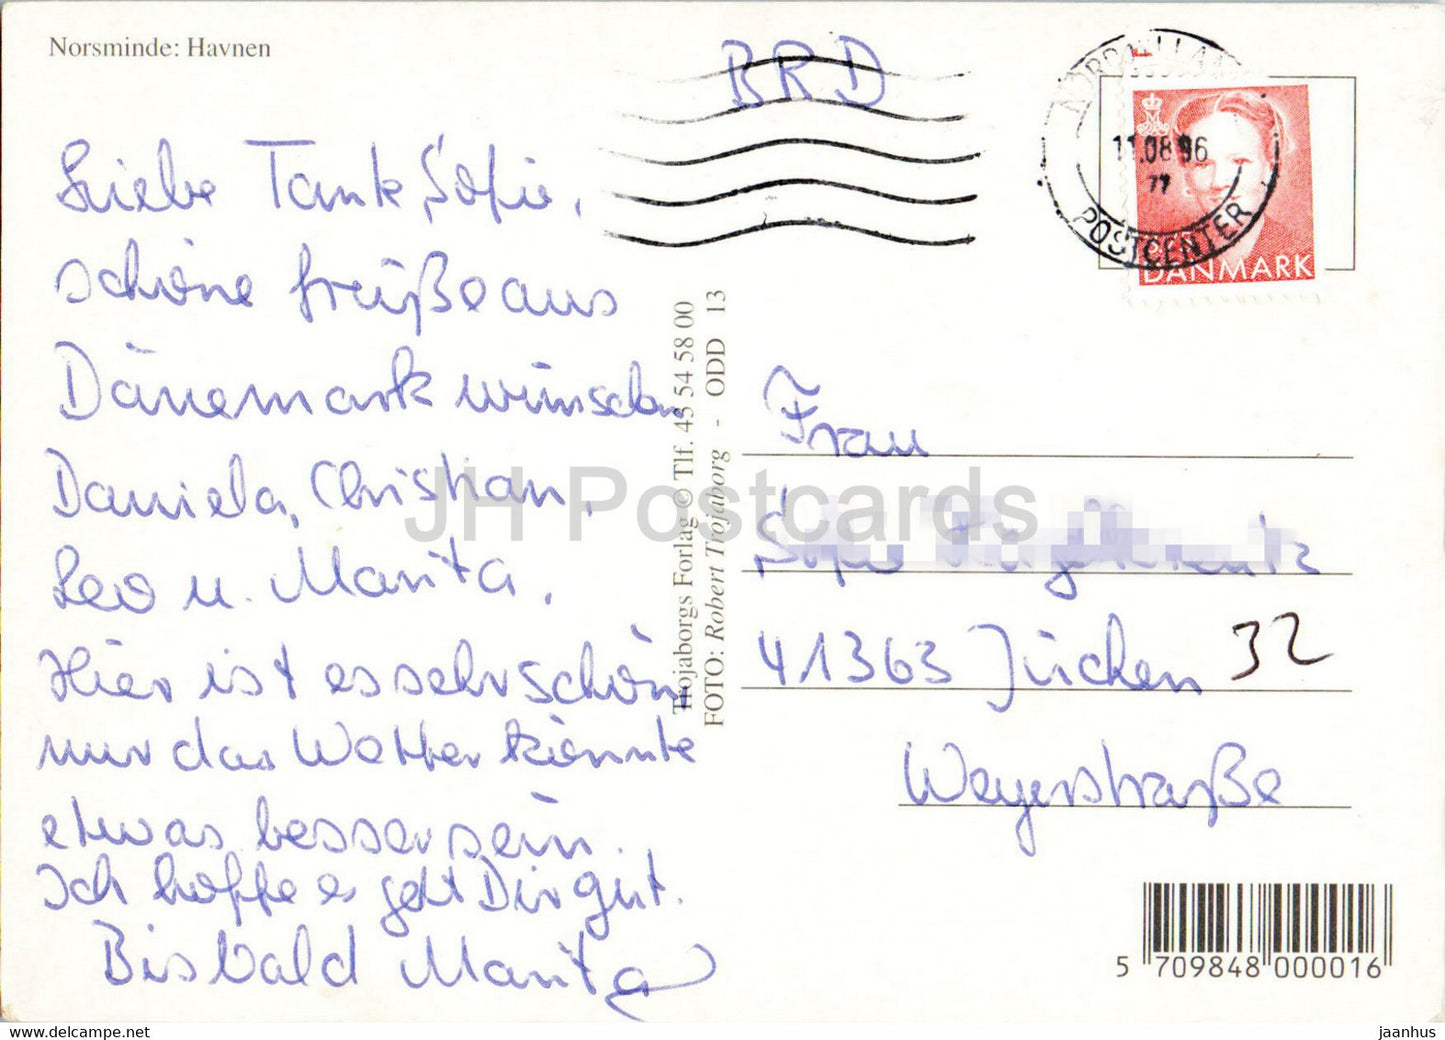 Norsminde: Havnen
BRD
Liebe Tank Sofie,
schöne Grüße aus
Dänemark wünschen
Daniela, Christian,
Leo u. Marita.
Hier ist es sehr schön
nur das Wetter könnte
etwas besser sein.
Ich hoffe es geht Dir gut.
Bis bald Marita
Trojaborgs Forlag © Tlf. 45 54 58 00
FOTO: Robert Trojaborg - ODD 13
11.08.96
POSTCENTER
DANMARK
Frau
41363 Jüchen 32
Weyerstraße
5 709848 000016
JH Postcards
jaanhus
© delcampe.net